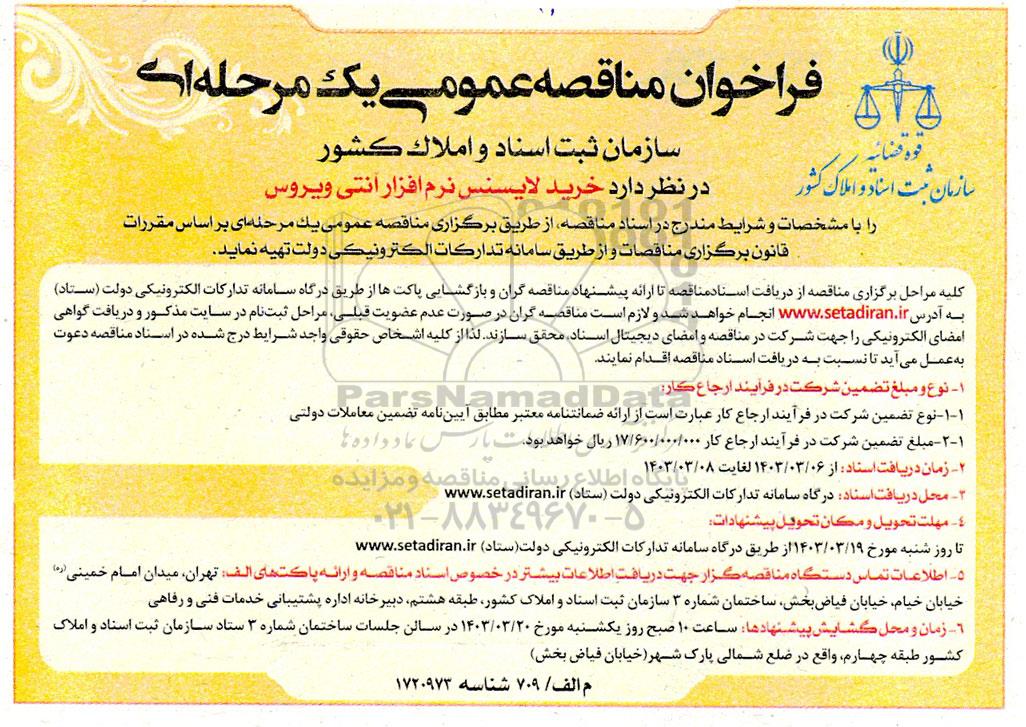 فراخوان مناقصه عمومی یک مرحله‌ای
قوه قضائیه
سازمان ثبت اسناد و املاک کشور
سازمان ثبت اسناد و املاک کشور
در نظر دارد خرید لایسنس نرم افزار آنتی ویروس
را با مشخصات و شرایط مندرج در اسناد مناقصه، از طریق برگزاری مناقصه عمومی یک مرحله‌ای بر اساس مقررات
قانون برگزاری مناقصات و از طریق سامانه تدارکات الکترونیکی دولت تهیه نماید.
کلیه مراحل برگزاری مناقصه از دریافت اسنادمناقصه تا ارائه پیشنهاد مناقصه گران و بازگشایی پاکت ها از طریق درگاه سامانه تدارکات الکترونیکی دولت (ستاد)
به آدرس www.setadiran.ir انجام خواهد شد و لازم است مناقصه گران در صورت عدم عضویت قبلی، مراحل ثبت‌نام در سایت مذکور و دریافت گواهی
امضای الکترونیکی را جهت شرکت در مناقصه و امضای دیجیتال اسناد، محقق سازند. لذا از کلیه اشخاص حقوقی واجد شرایط درج شده در اسناد مناقصه دعوت
به‌عمل می‌آید تا نسبت به دریافت اسناد مناقصه اقدام نمایند.
۱- نوع و مبلغ تضمین شرکت در فرآیند ارجاع کار:
ParsNamadData
۱-۱-نوع تضمین شرکت در فرآیند ارجاع کار عبارت است از ارائه ضمانتنامه معتبر مطابق آیین‌نامه تضمین معاملات دولتی
۲-۱-مبلغ تضمین شرکت در فرآیند ارجاع کار ۱۷/۶۰۰/۰۰۰/۰۰۰ ریال خواهد بود.
۲- زمان دریافت اسناد: از ۱۴۰۳/۰۳/۰۶ لغایت ۱۴۰۳/۰۳/۰۸
پایگاه اطلاع رسانی مناقصه و مزایده
۳- محل دریافت اسناد: درگاه سامانه تدارکات الکترونیکی دولت (ستاد) www.setadiran.ir
۰۲۱-۸۸۳۴۹۶۷۰-۵
۴- مهلت تحویل و مکان تحویل پیشنهادات:
تا روز شنبه مورخ ۱۴۰۳/۰۳/۱۹ از طریق درگاه سامانه تدارکات الکترونیکی دولت(ستاد) www.setadiran.ir
۵- اطلاعات تماس دستگاه مناقصه گزار جهت دریافت اطلاعات بیشتر در خصوص اسناد مناقصه و ارائه پاکت‌های الف: تهران، میدان امام خمینی(ره)
خیابان خیام، خیابان فیاض‌بخش، ساختمان شماره ۳ سازمان ثبت اسناد و املاک کشور، طبقه هشتم، دبیرخانه اداره پشتیبانی خدمات فنی و رفاهی
۶- زمان و محل گشایش پیشنهادها: ساعت ۱۰ صبح روز یکشنبه مورخ ۱۴۰۳/۰۳/۲۰ در سالن جلسات ساختمان شماره ۳ ستاد سازمان ثبت اسناد و املاک
کشور طبقه چهارم، واقع در ضلع شمالی پارک شهر(خیابان فیاض بخش)
م الف/ ۷۰۹ شناسه ۱۷۲۰۹۷۳